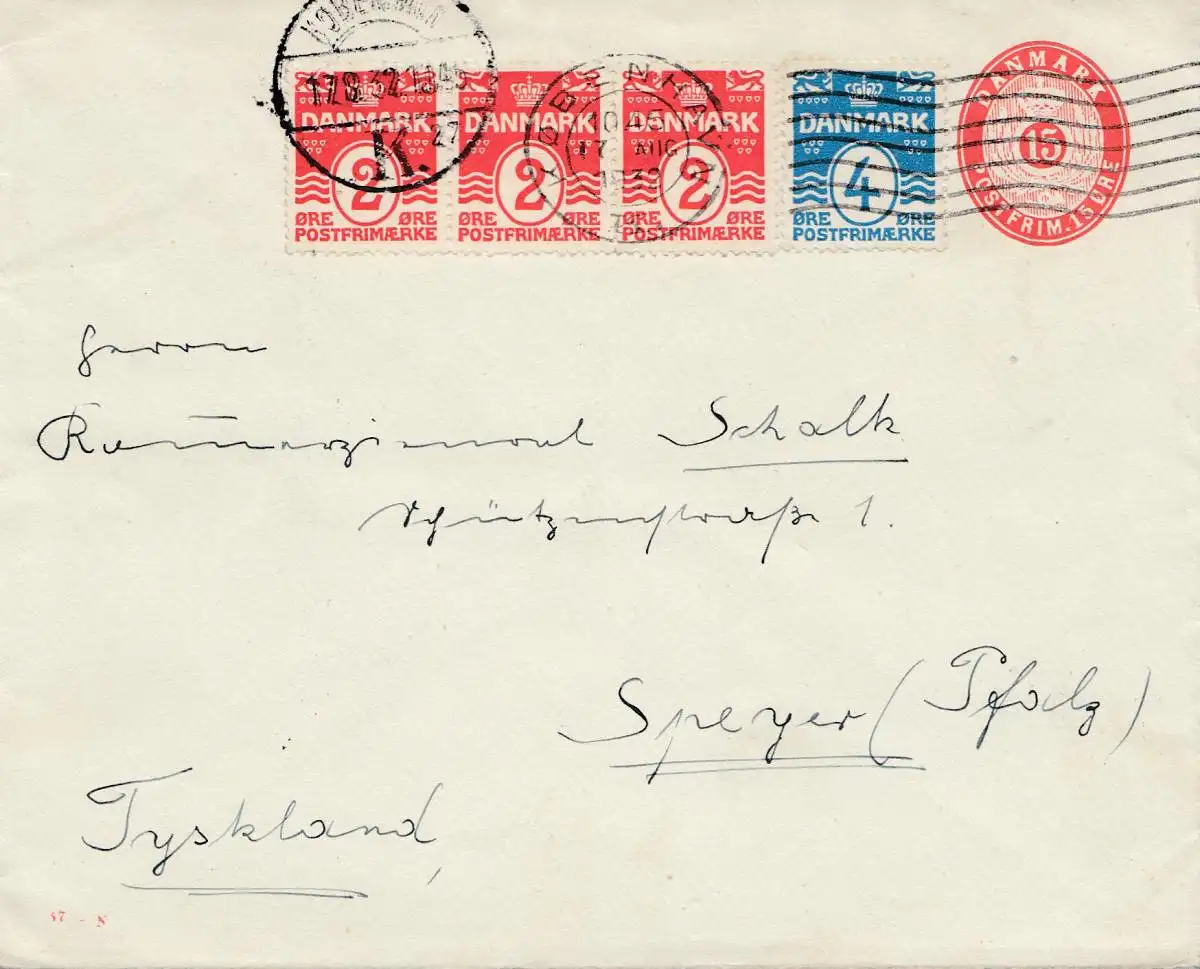 KØBENHAVN
17.8.32.
K.
27
KØBENHAVN
17 AUG
DANMARK
2
ØRE ØRE
POSTFRIMÆRKE
DANMARK
2
ØRE ØRE
POSTFRIMÆRKE
DANMARK
2
ØRE ØRE
POSTFRIMÆRKE
DANMARK
4
ØRE ØRE
POSTFRIMÆRKE
DANMARK
15
POSTFRIM. 15 ØRE
Herrn
Kom̄erzienrat Schalk
Schützenstraße 1.
Speyer (Pfalz)
Tyskland
87 - S